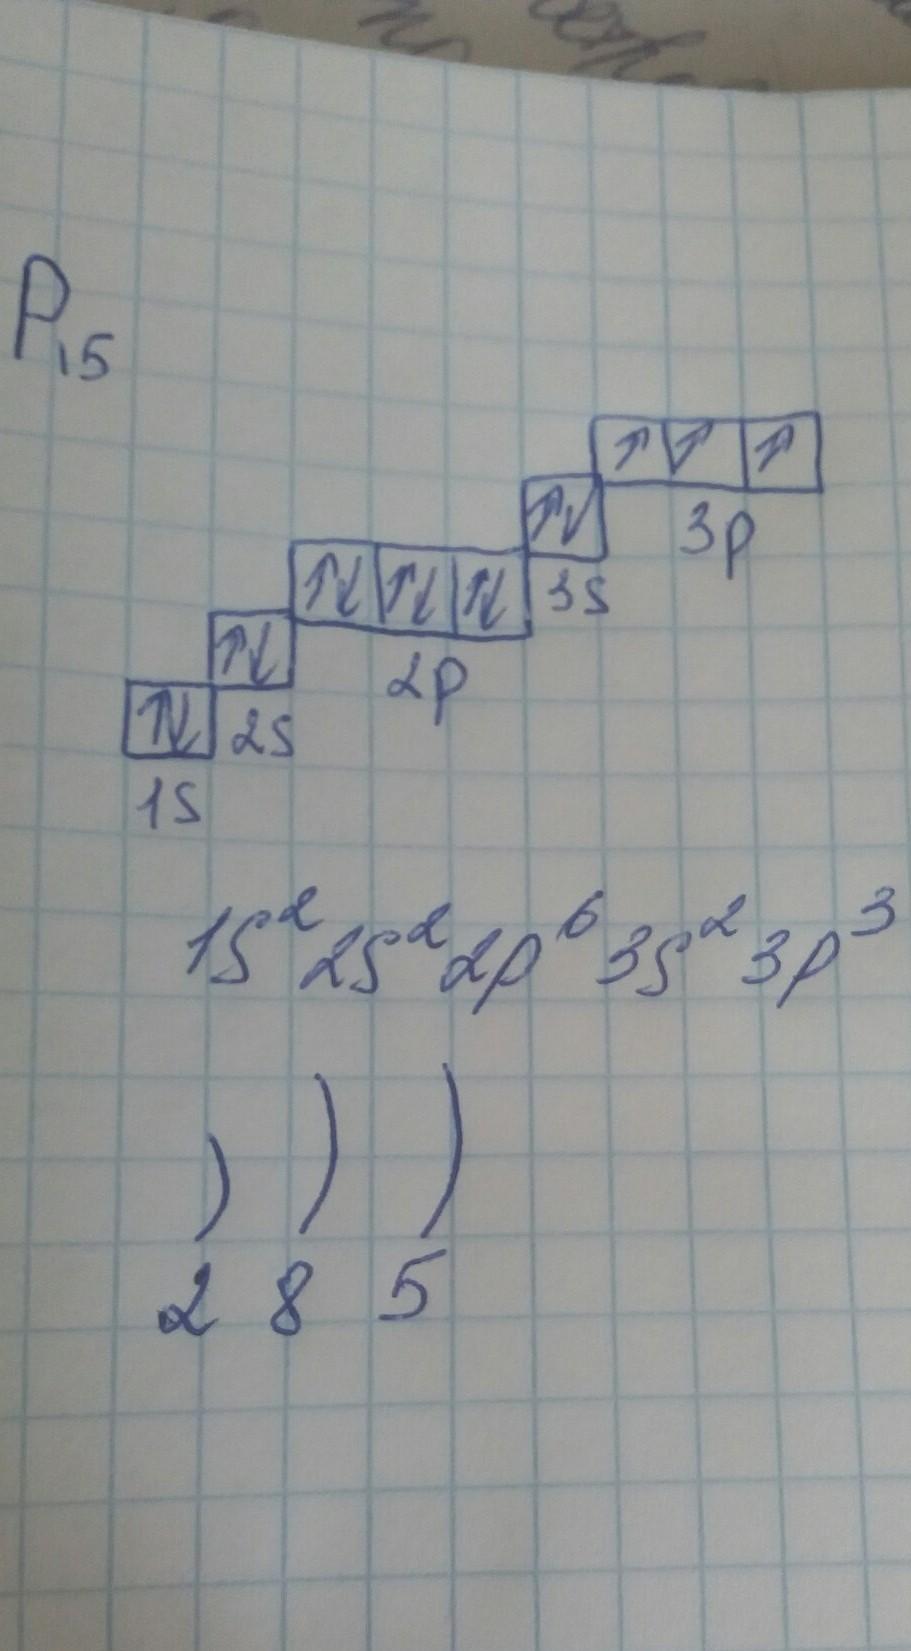 P₁₅
3p
3s
2p
2s
1s
1s² 2s² 2p⁶ 3s² 3p³
) ) )
2 8 5